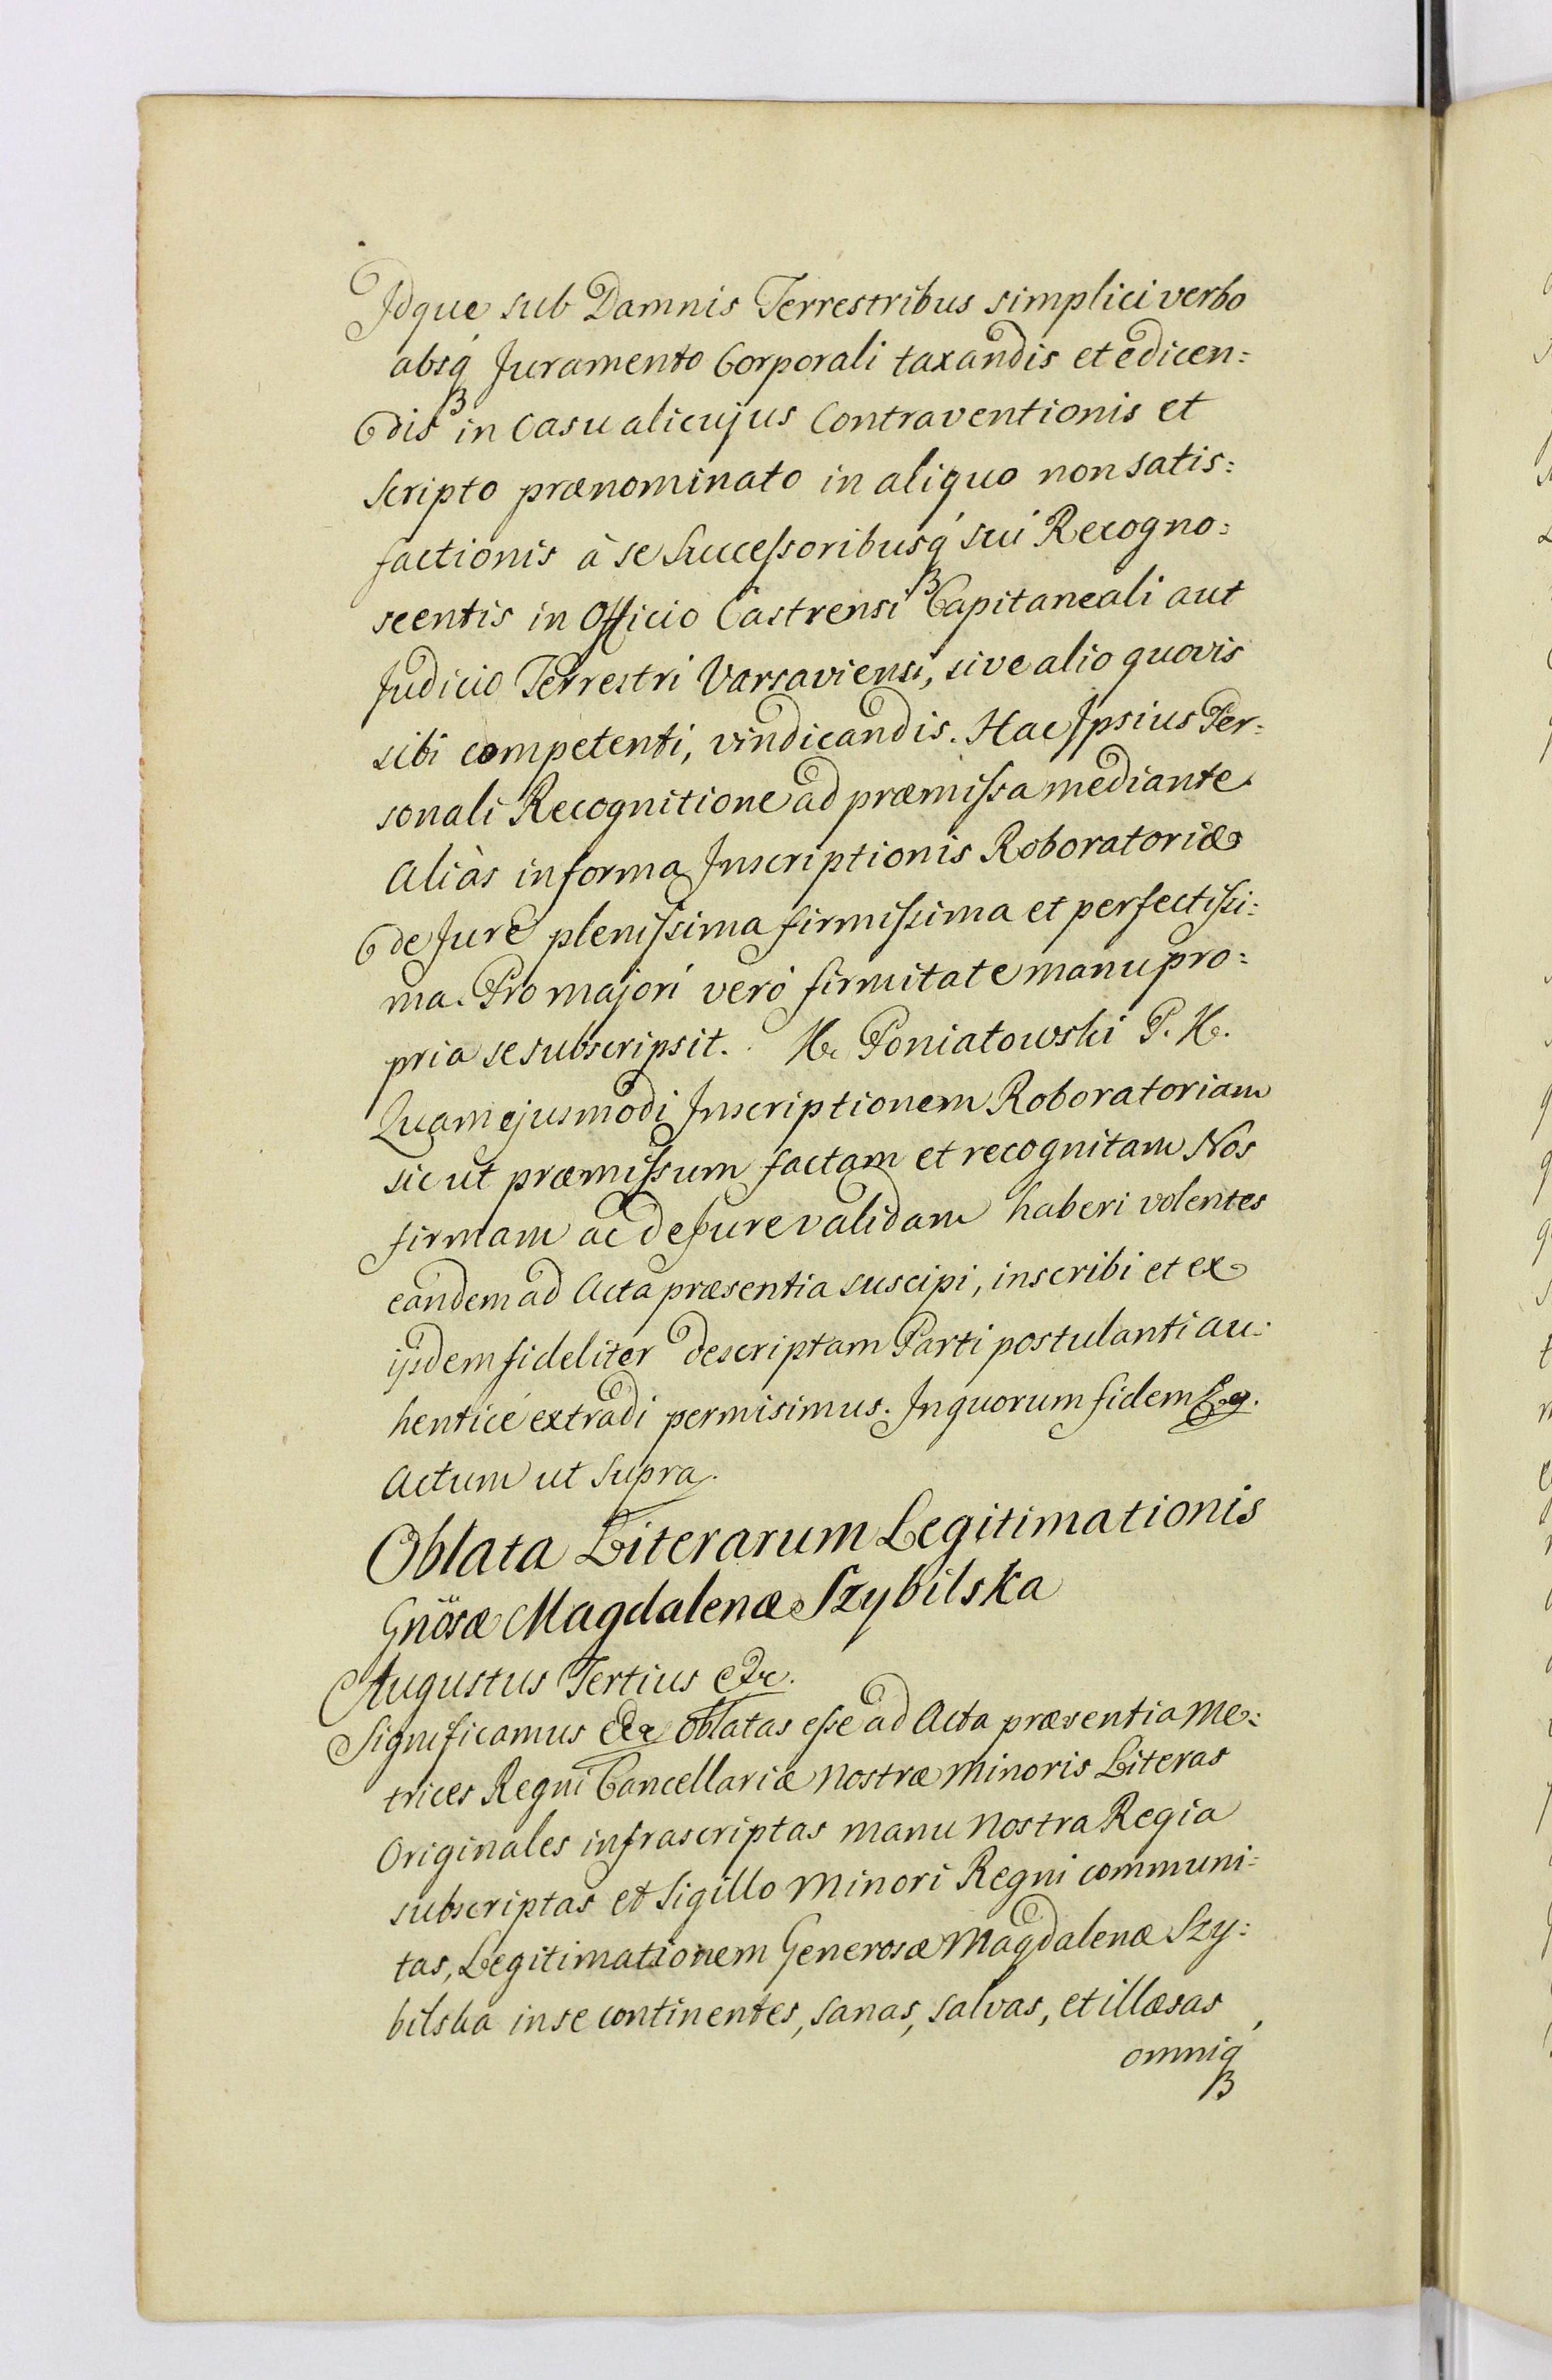 Idque sub Damnis Terrestribus simplici verbo
absq́ Juramento Corporali taxandis et edicen:
dis in Casu alicujus Contraventionis et
Scripto prænominato in aliquo non satis:
factionis à se Successoribusq́ sui Recogno:
scentis in Officio Castrensi Capitaneali aut
Judicio Terrestri Varsaviensi, sive alio quovis
sibi competenti, vindicandis. Hac Ipsius Per:
sonali Recognitione ad præmissa mediante
Aliàs in forma Inscriptionis Roboratoriæ
de Jure plenissima firmissima et perfectissi:
ma. Pro majori veró firmitate manu pro:
pria se subscripsit. Poniatowski P. K.
Quam ejusmodi Inscriptionem Roboratoriam
sic ut præmissum factam et recognitam Nos
firmam ac de Jure validam haberi volentes
eandem ad Acta præsentia suscipi, inscribi et ex
ijsdem fideliter descriptam Parti postulanti au:
henticé extradi permisimus. In quorum fidem
Actum ut Supra.
Oblata Literarum Legitimationis
Gnösæ Magdalenæ Szybilska
Augustus Tertius etc.
Significamus etc Oblatas esse ad Acta præsentia Me:
trices Regni Cancellariæ Nostræ Minoris Literas
Originales infrascriptas manu Nostra Regia
subscriptas et Sigillo Minori Regni communi:
tas, Legitimationem Generosæ Magdalenæ Szy:
bilska in se continentes, sanas, salvas, et illæsas
omniq́